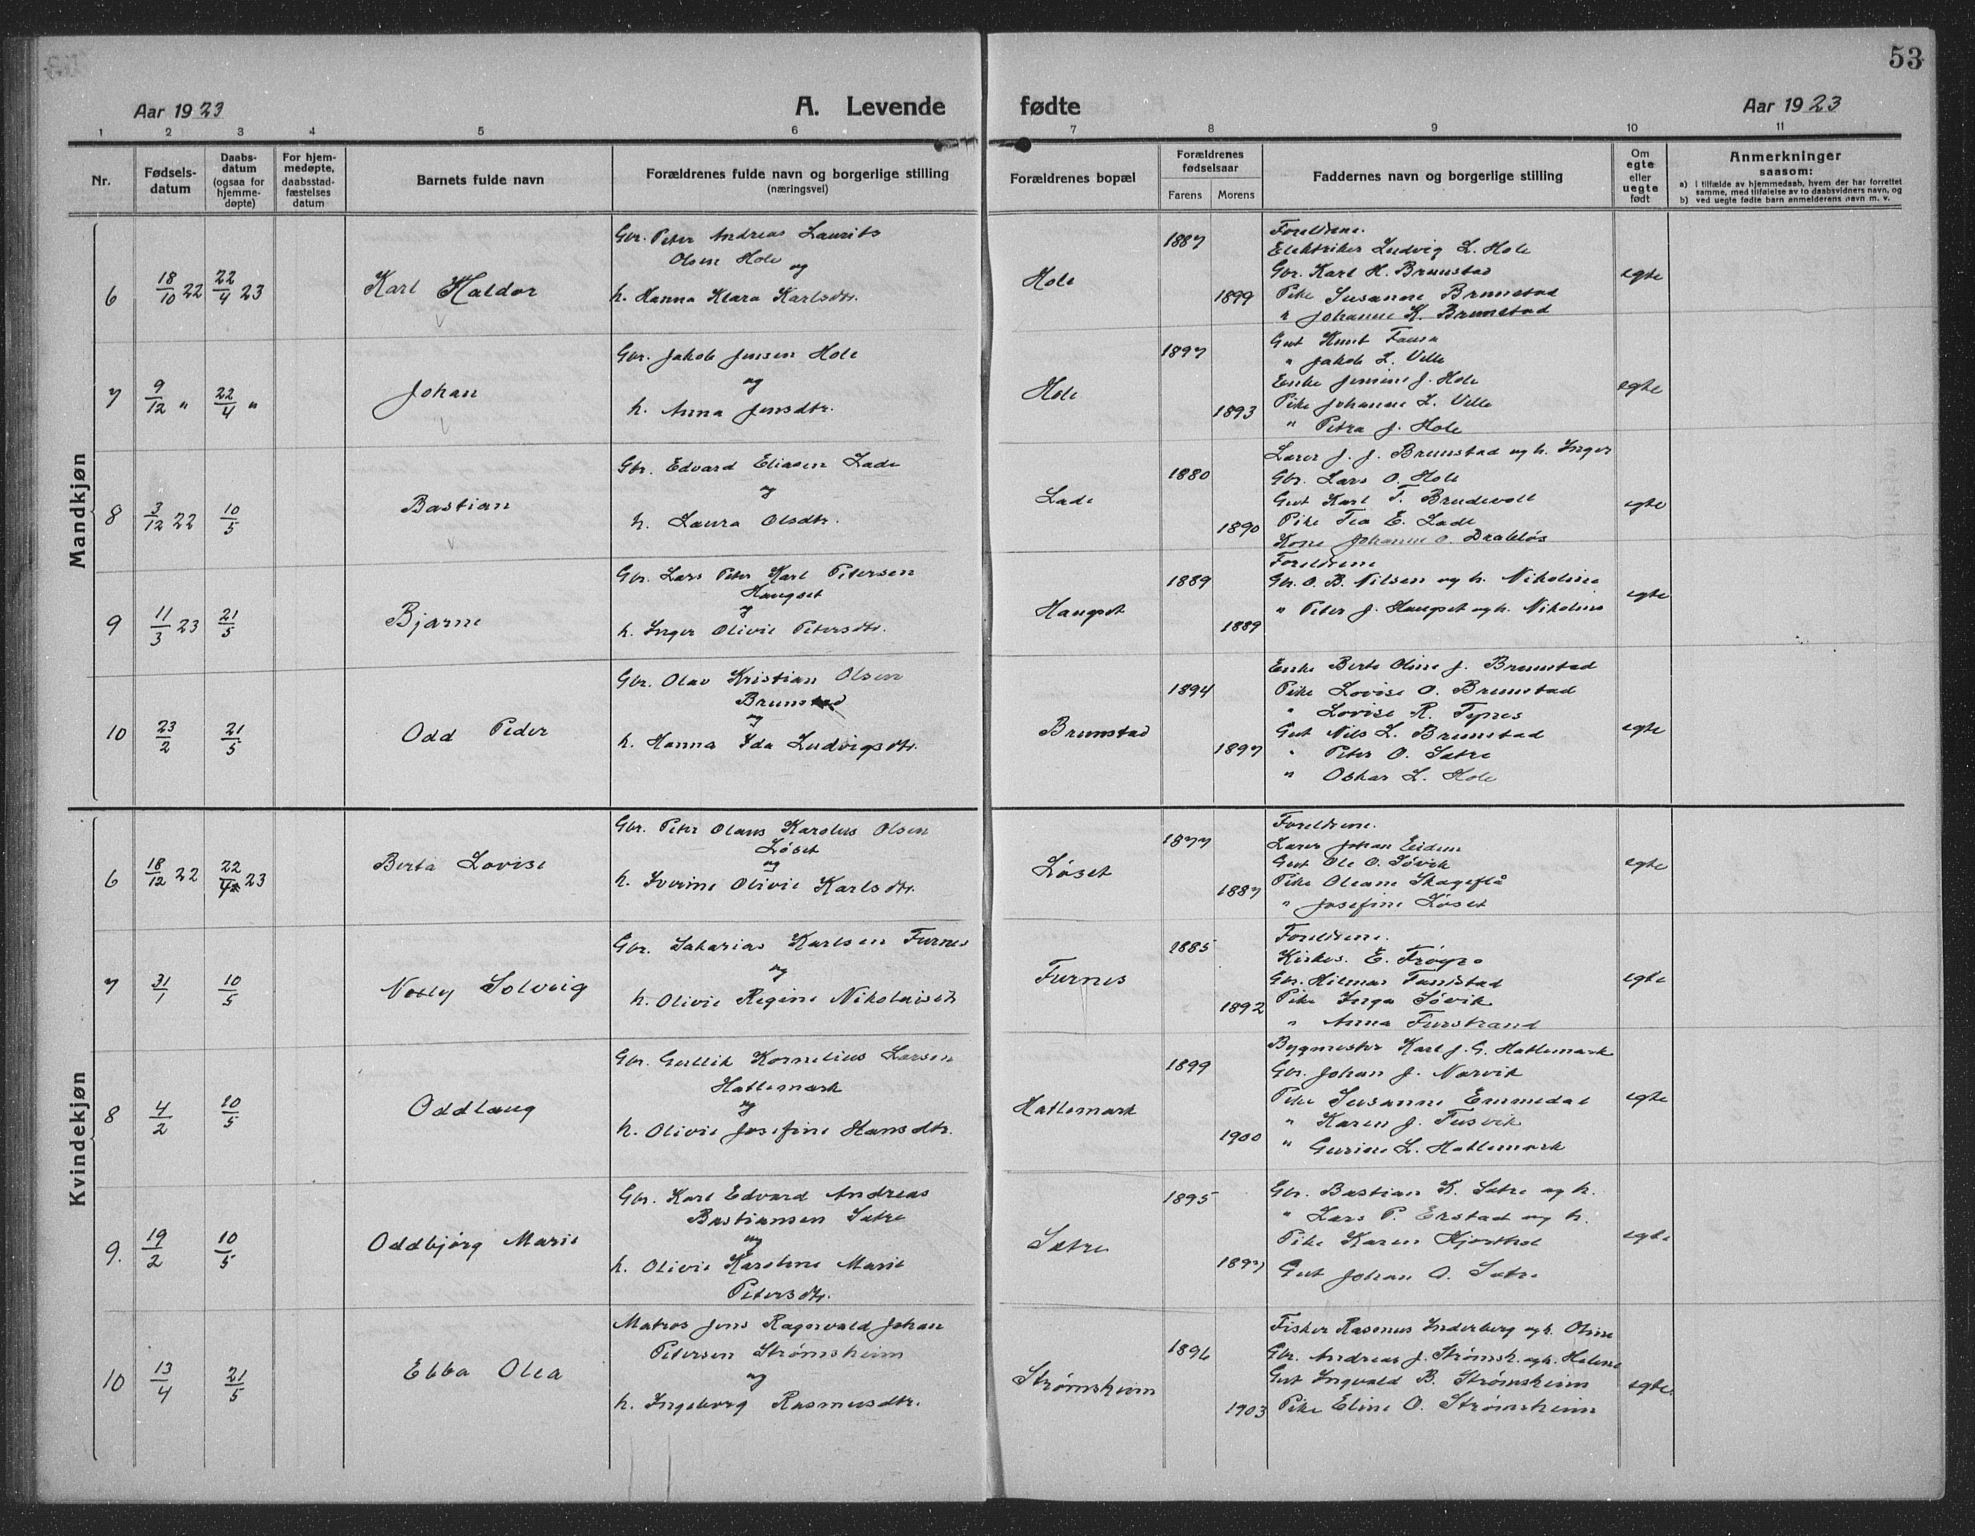 53
Aar 1923 A. Levende fødte Aar 1923
1 2 3 4 5 6 7 8 9 10 11
Nr.
Fødsels-
datum
Daabs-
datum
(ogsaa for
hjemme-
døpte)
For hjem-
medøpte,
daabsstad-
fæstelses
datum
Barnets fulde navn
Forældrenes fulde navn og borgerlige stilling
(næringsvei)
Forældrenes bopæl
Forældrenes
fødselsaar
Farens Morens
Faddernes navn og borgerlige stilling
Om
egte
eller
uegte
født
Anmerkninger
saasom:
a) i tilfælde av hjemmedaab, hvem der har forrettet
samme, med tilføielse av to daabsvidners navn, og
b) ved uegte fødte barn anmelderens navn m. v.
Mandkjøn
6 18/10 22 22/4 23 Karl Haldor
Gbr. Peter Andreas Laurits
Olsen Hole
og
h. Hanna Klara Karlsdtr.
Hole 1887 1899
Foreldrene.
Elektriker Ludvig L. Hole
Gbr. Karl H. Brunstad
Pike Susanne Brunstad
" Johanne K. Brunstad
egte
7 9/12 " 22/4 " Johan
Gbr. Jakob Jensen Hole
og
h. Anna Jensdtr.
Hole 1897 1893
Gut Knut Fausa
" Jakob L. Velle
Enke Jensine J. Hole
Pike Johanne L. Velle
" Petra J. Hole
egte
8 3/12 22 10/5 Bastian
Gbr. Edvard Eliasen Lade
og
h. Laura Olsdtr.
Lade 1880 1890
Lærer J. J. Brunstad og h. Inger
Gbr. Lars O. Hole
Gut Karl T. Brudevoll
Pike Tea E. Lade
Kone Johanne O. Drabløs
egte
9 11/3 23 21/5 Bjarne
Gbr. Lars Peter Karl Petersen
Haugset
og
h. Inger Olivie Petersdtr.
Haugset 1889 1889
Foreldrene
Gbr. O. B. Nilsen og h. Nikoline
" Peter J. Haugset og h. Nikoline
egte
10 23/2 21/5 Odd Peder
Gbr. Olav Kristian Olsen
Brunstad
og
h. Hanna Ida Ludvigsdtr.
Brunstad 1894 1897
Enke Berte Oline J. Brunstad
Pike Lovise O. Brunstad
" Lovise R. Tynes
Gut Nils L. Brunstad
" Peter O. Sætre
" Oskar L. Hole
egte
Kvindekjøn
6 18/12 22 22/4 23 Berta Lovise
Gbr. Peter Olaus Karolus Olsen
Løset
og
h. Iverine Olivie Karlsdtr.
Løset 1877 1887
Foreldrene.
Lærer Johan Eidem
Gut Ole O. Søvik
Pike Oleane Skageflå
" Josefine Løset
egte
7 31/1 10/5 Nelly Solveig
Gbr. Sakarias Karlsen Furnes
og
h. Olivie Regine Nikolaisdt.
Furnes 1885 1892
Foreldrene.
Kirkes. E. Frøysa
Gbr. Hilmar
Pike Inga Søvik
" Anna Furstrand
egte
8 4/2 10/5 Oddlaug
Gbr. Gullik Kornelius Larsen
Hatlemark
og
h. Olivie Josefine Hansdtr.
Hatlemark 1899 1900
Bygmester Karl J. G. Hatlemark
Gbr. Johan J. Narvik
Pike Susanne Emmedal
" Karen J. Tusvik
" Gurine L. Hatlemark
egte
9. 19/2 10/5 Oddbjørg Marie
Gbr. Karl Edvard Andreas
Bastiansen Sætre
og
h. Olivie Karoline Marie
Petersdtr.
Sætre 1895 1897
Gbr. Bastian K. Sætre og h.
" Lars P. Erstad og h.
Pike Karen Hjorthol
Gut Johan O. Sætre
egte
10 13/4 21/5 Ebba Olea
Matros Jens Ragnvald Johan
Petersen Strømsheim
og
h. Ingeborg Rasmusdtr.
Strømsheim 1896 1903
Fisker Rasmus Inderberg og h. Oline
Gbr. Andreas J. Strømsh. og h. Helene
Gut Ingvald B. Strømsheim
Pike Eline O. Strømsheim
egte.